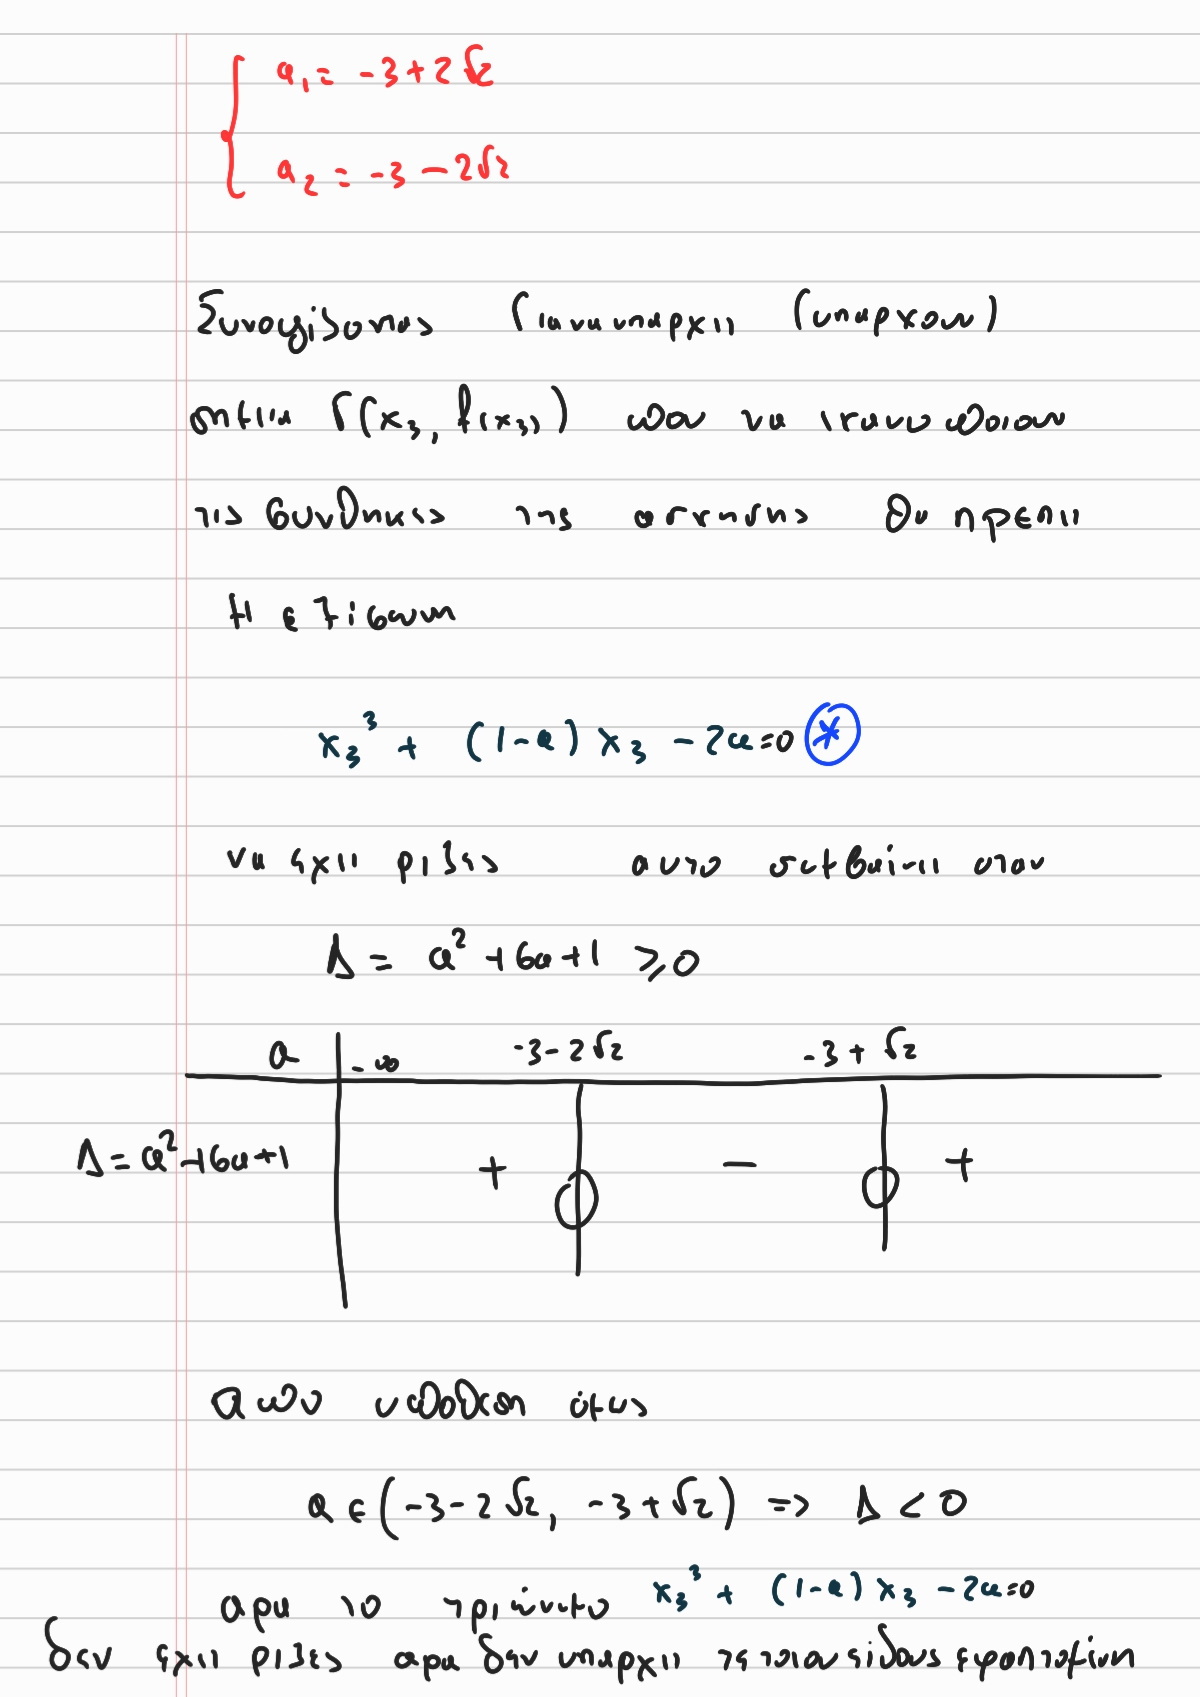 α₁ = -3+2√2
α₂ = -3-2√2
Συνοψίζοντας Για να υπαρχει (υπαρχουν)
σημεια Γ(x₃, f(x₃)) που να ικανοποιουν
τις συνθηκες της ασκησης θα πρεπει
Η εξισωση
x₃³ + (1-α) x₃ - 2α=0 *
να εχει ριζες αυτο συμβαίνει οταν
Δ = α² +6α+1 ⩾0
α -∞ -3-2√2 -3+√2
Δ=α²+6α+1 + - +
απο υποθεση όμως
α ∈ (-3-2√2, -3+√2) => Δ < 0
αρα το τριώνυμο x₃³ + (1-α) x₃ - 2α=0
δεν εχει ριζες αρα δεν υπαρχει τετοιου είδους εφαπτομένη